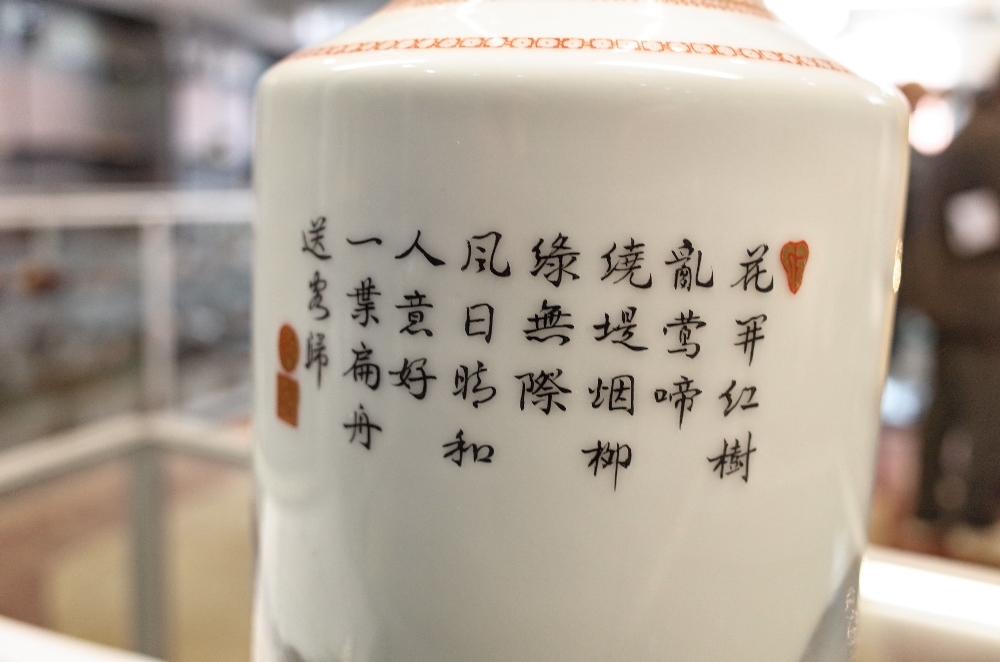 花開紅樹
亂鶯啼
繞堤烟柳
綠無際
風日晴和
人意好
一葉扁舟
送客歸